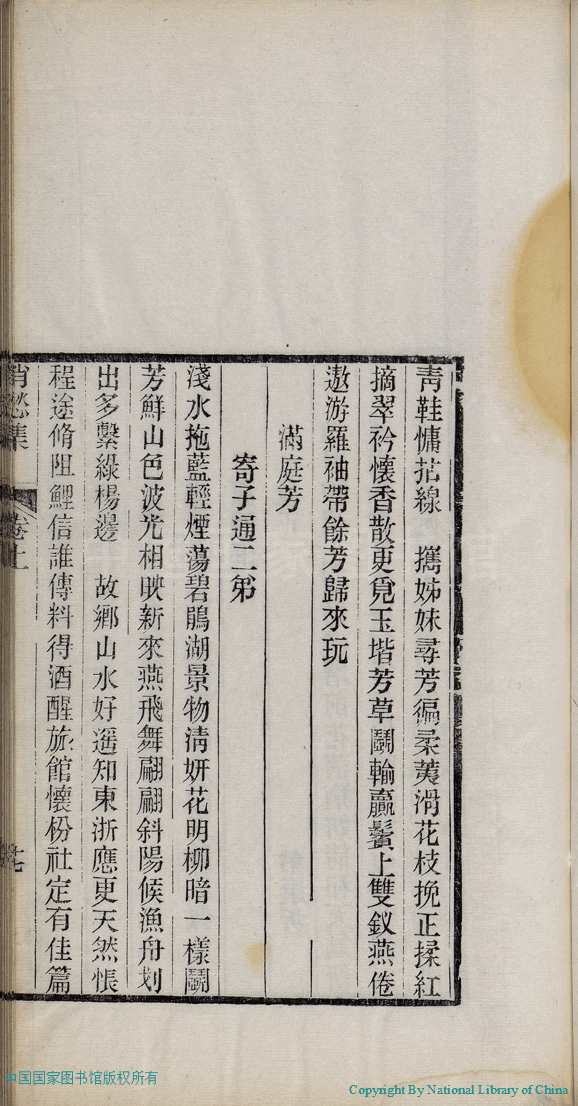 青鞋慵拈線　攜姊妹尋芳徧柔荑滑花枝挽正揉紅
摘翠衿懷香散更覓玉堦芳草鬭輸贏鬢上雙釵燕倦
遨游羅袖帶餘芳歸來玩
滿庭芳
寄子通二弟
淺水拖藍輕煙蕩碧鵑湖景物淸妍花明柳暗一樣鬭
芳鮮山色波光相映新來燕飛舞翩翩斜陽候漁舟划
出多繫綠楊邊　故鄉山水好遥知東浙應更天然悵
程途脩阻鯉信誰傳料得酒醒旅館懷枌社定有佳篇
消愁集　卷上
中国国家图书馆版权所有
Copyright By National Library of China